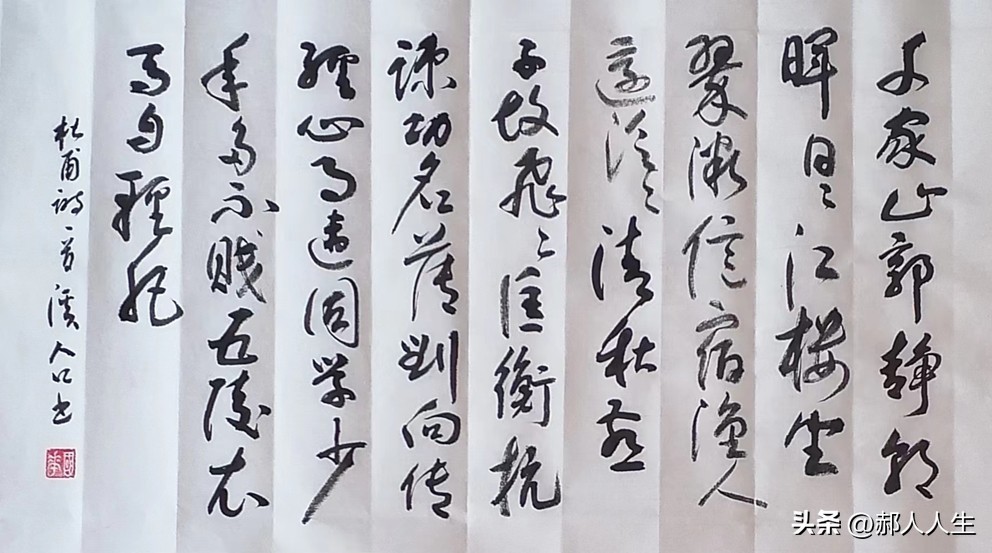 千家山郭静朝
晖日日江楼坐
翠微信宿渔人
還泛泛清秋燕
子故飛飛匡衡抗
疏功名薄劉向传
經心事違同学少
年多不贱五陵衣
馬自輕肥
杜甫诗一首 溪人口书
头条 @郝人人生